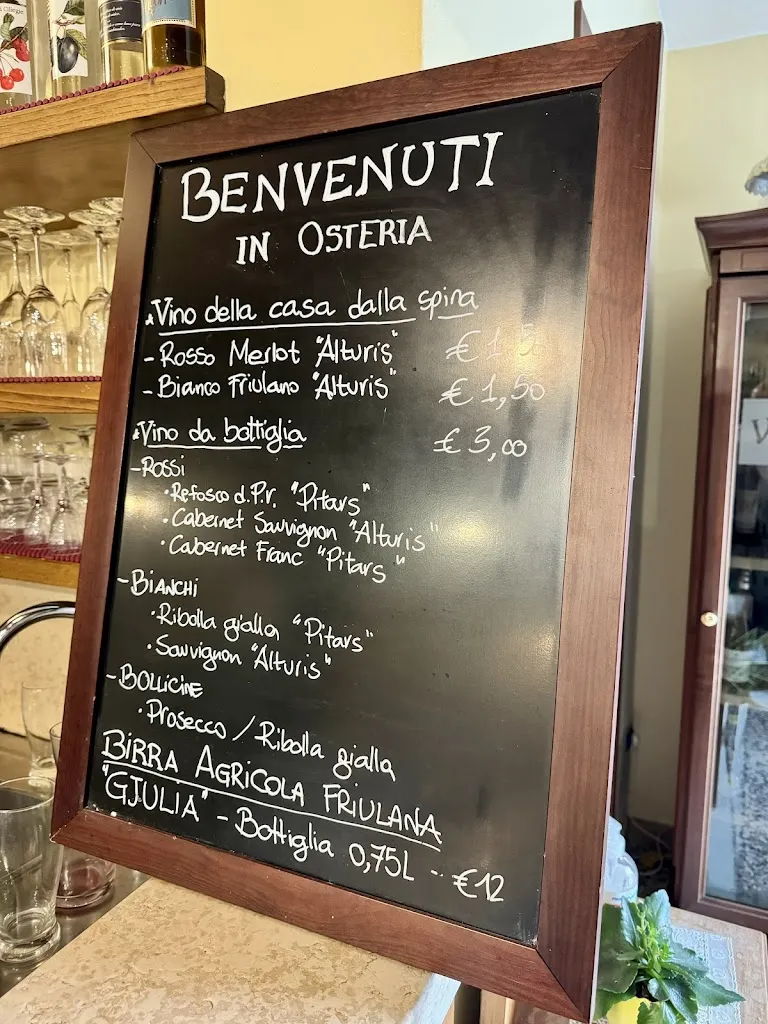 BENVENUTI
IN OSTERIA
*Vino della casa dalla spina
- Rosso Merlot "Alturis" € 1,50
- Bianco Friulano "Alturis" € 1,50
*Vino da bottiglia € 3,00
- ROSSI
• Refosco d.P.r. "Pitars"
• Cabernet Sauvignon "Alturis"
• Cabernet Franc "Pitars"
- BIANCHI
• Ribolla gialla "Pitars"
• Sauvignon "Alturis"
- BOLLICINE
• Prosecco / Ribolla gialla
BIRRA AGRICOLA FRIULANA
"GJULIA" - Bottiglia 0,75L - €12